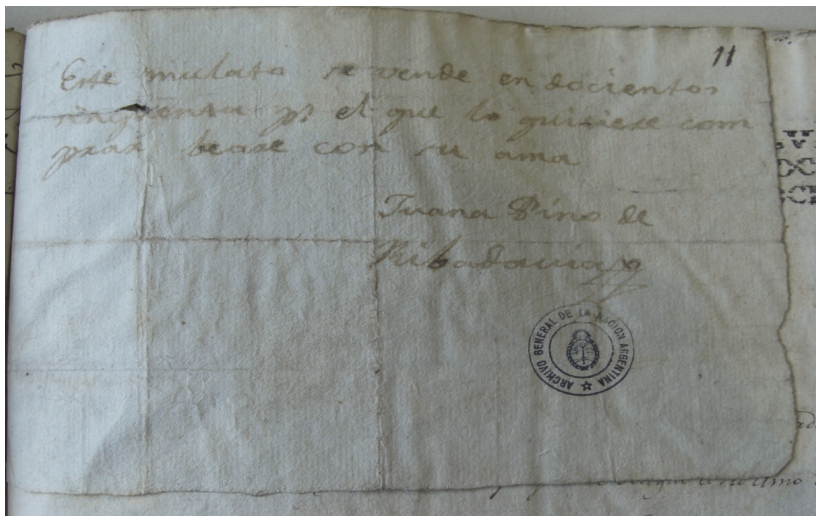 11
Este mulato se vende en docientos
sinquenta ps el que lo quisiese com
prar bease con su ama
Juana Pino de
Ribadavia
ARCHIVO GENERAL DE LA NACION ARGENTINA